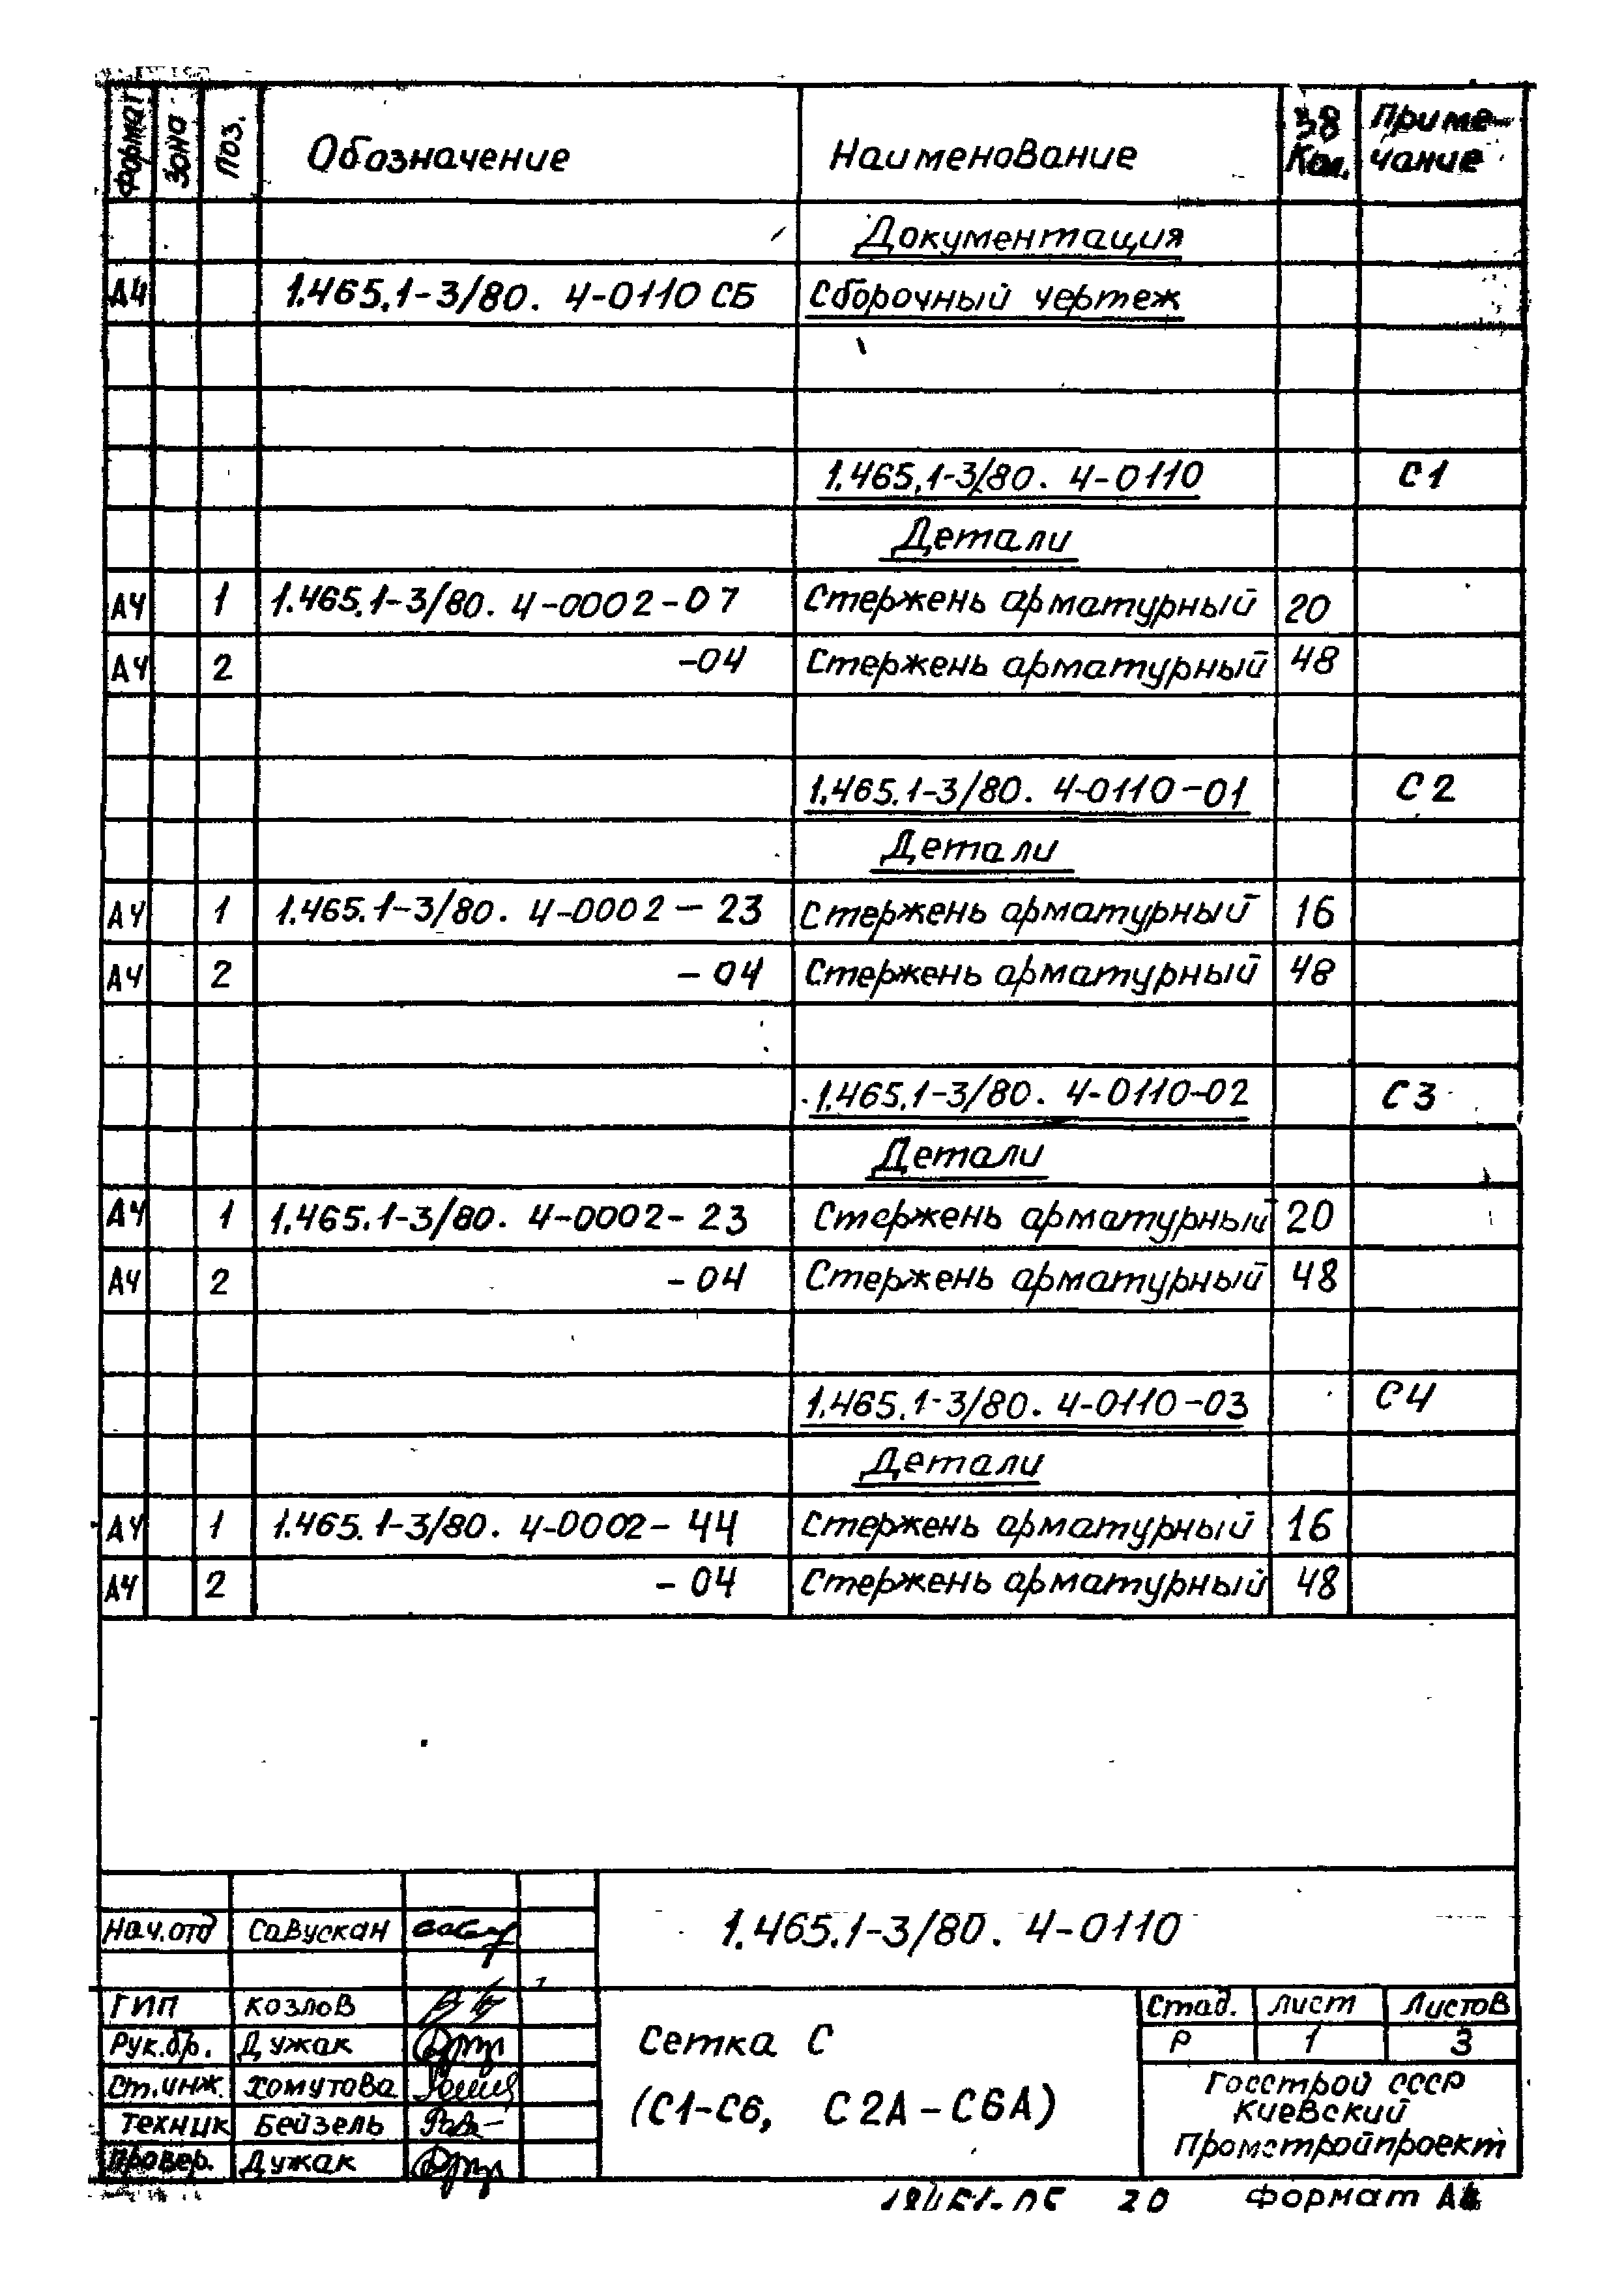 Формат Зона Поз. Обозначение Наименование Кол. Приме-чание
38
Документация
А4 1.465.1-3/80. 4-0110 СБ Сборочный чертеж
1.465.1-3/80. 4-0110 С1
Детали
А4 1 1.465.1-3/80. 4-0002-07 Стержень арматурный 20
А4 2 -04 Стержень арматурный 48
1.465.1-3/80. 4-0110-01 С2
Детали
А4 1 1.465.1-3/80. 4-0002-23 Стержень арматурный 16
А4 2 -04 Стержень арматурный 48
1.465.1-3/80. 4-0110-02 С3
Детали
А4 1 1.465.1-3/80. 4-0002-23 Стержень арматурный 20
А4 2 -04 Стержень арматурный 48
1.465.1-3/80. 4-0110-03 С4
Детали
А4 1 1.465.1-3/80. 4-0002-44 Стержень арматурный 16
А4 2 -04 Стержень арматурный 48
Нач.отд Савускан
1.465.1-3/80. 4-0110
ГИП Козлов
Рук.бр. Дужак
Ст.инж. Хомутова
Техник Бейзель
Провер. Дужак
Сетка С
(С1-С6, С2А-С6А)
Стад. Лист Листов
Р 1 3
Госстрой СССР
Киевский
Промстройпроект
20 Формат А4